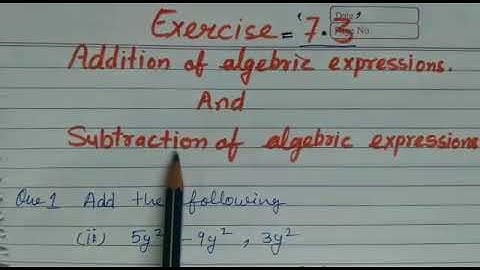 Exercise = '7.3
Date
Page No
Addition of algebric expressions.
And
Subtraction of algebric expressions
Que 1 Add the following
(ii) 5y² -9y², 3y²